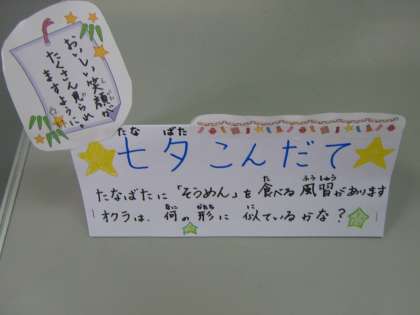 おいしい笑顔が
たくさん見られ
ますように
七夕こんだて
たなばたに「そうめん」を食べる風習があります
オクラは、何の形に似ているかな?